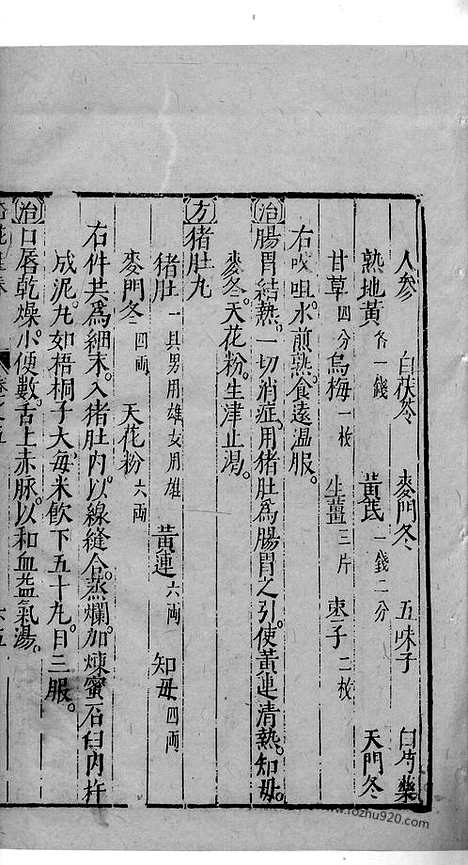 人參 白茯苓 麥門冬 五味子 白芍藥
熟地黃各一錢 黃芪一錢二分 天門冬
甘草四分 烏梅一枚 生薑三片 棗子二枚
右㕮咀水煎熟食遠溫服。
治腸胃結熱。一切消症。用猪肚爲腸胃之引。使黃連清熱。知母。
麥冬。天花粉。生津止渴。
方猪肚丸
猪肚一具男用雄女用雄 黃連六兩 知母四兩
麥門冬四兩 天花粉六兩
右件共爲細末。入猪肚內。以線縫合。蒸爛。加煉蜜。石臼內杵
成泥。丸如梧桐子大。每米飲下五十丸。日三服。
治口唇乾燥。小便數。舌上赤脉。以和血益氣湯。
www.fozhu920.com